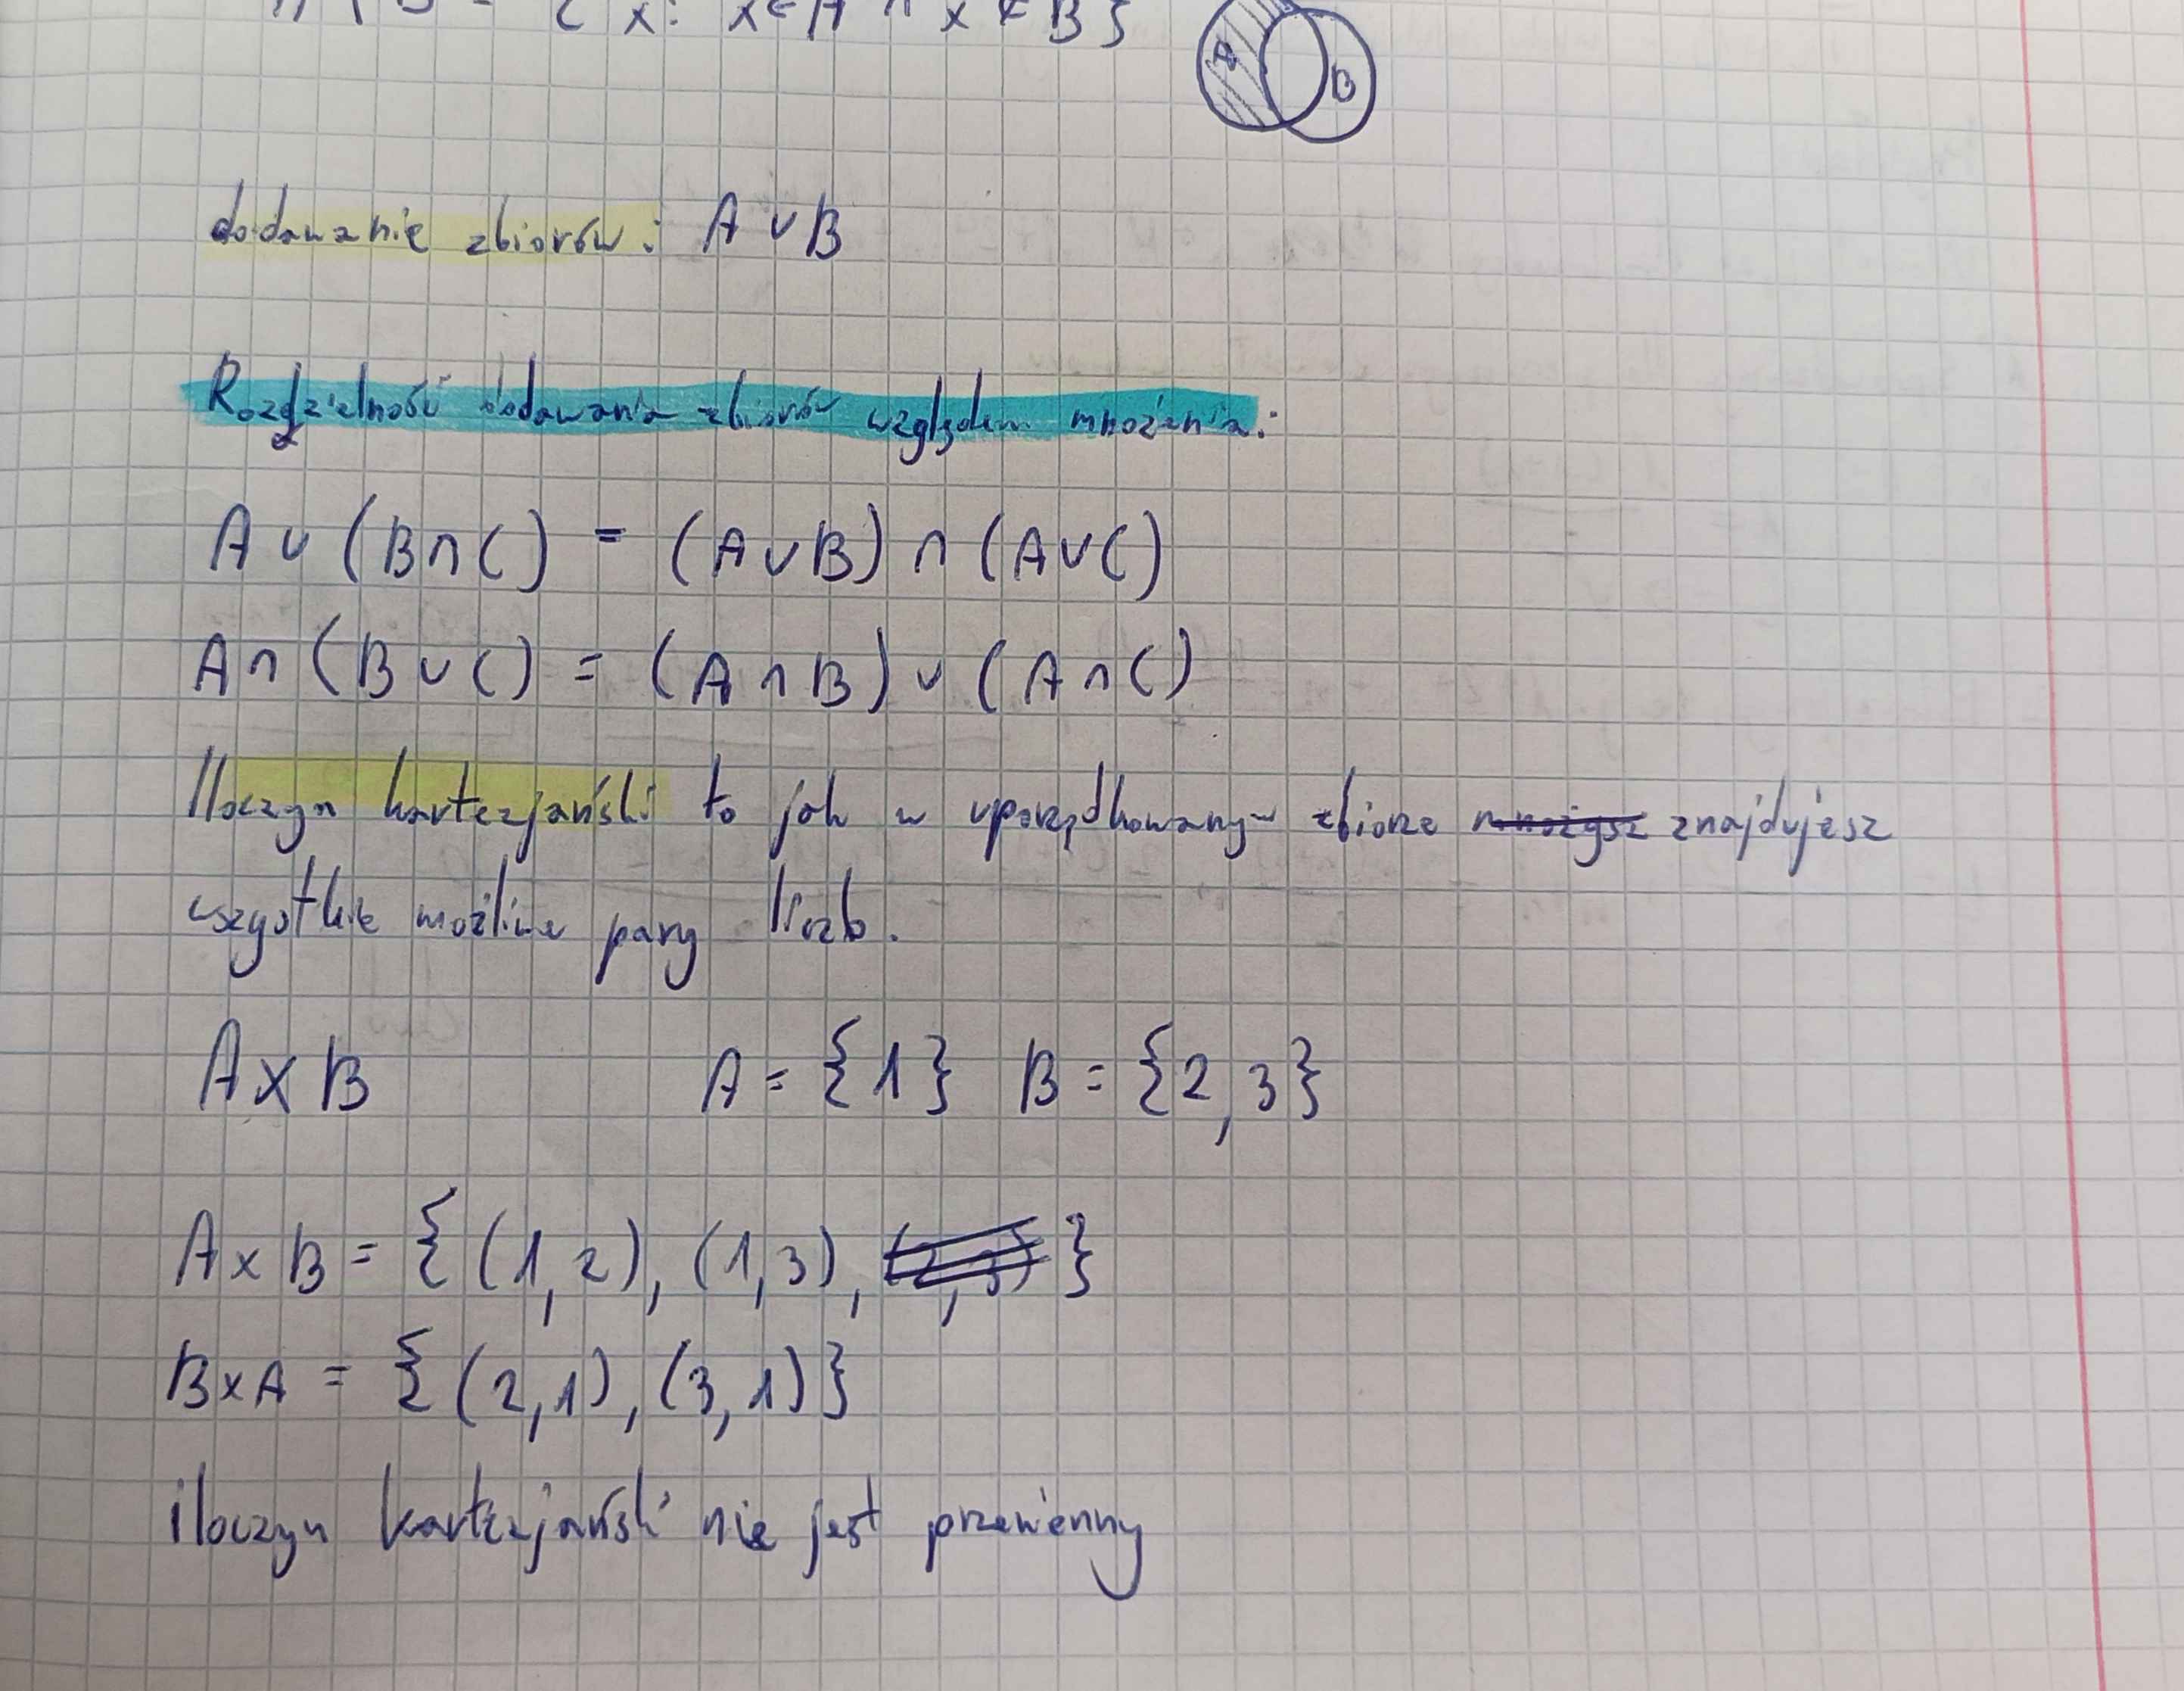 A \ B = { x: x ∈ A ∧ x ∉ B }
A B
dodawanie zbiorów: A ∪ B
Rozdzielność dodawania zbiorów względem mnożenia:
A ∪ (B ∩ C) = (A ∪ B) ∩ (A ∪ C)
A ∩ (B ∪ C) = (A ∩ B) ∪ (A ∩ C)
Iloczyn kartezjański to jak w uporządkowanym zbiorze mnożysz znajdujesz
wszystkie możliwe pary liczb.
A x B A = {1} B = {2, 3}
A x B = { (1, 2), (1, 3), (2, 3) }
B x A = { (2, 1), (3, 1) }
iloczyn kartezjański nie jest przemienny